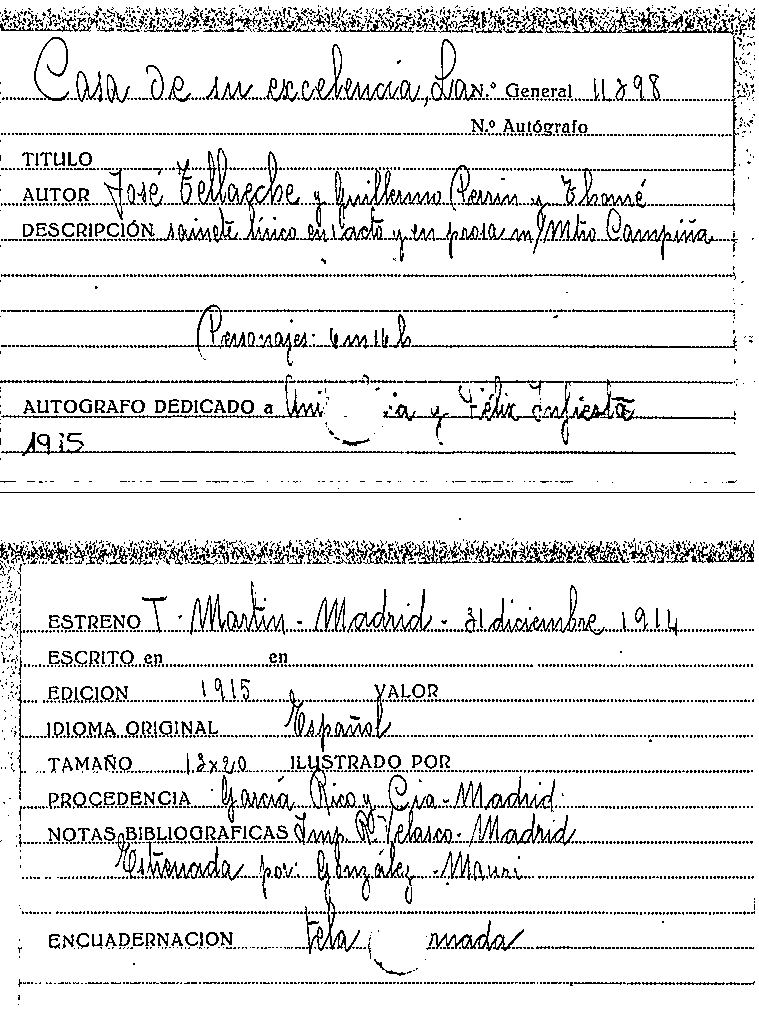 Casa de su excelencia, La N.º General 11898
N.º Autógrafo
TITULO
AUTOR José Tellaeche y Guillermo Perrin y Thomé
DESCRIPCIÓN sainete lírico en 1 acto y en prosa m/Mtro Campiña
Personajes: 6 m 16 h
AUTOGRAFO DEDICADO a y Félix Infiesta
1915
ESTRENO T. Martin - Madrid - 31 diciembre 1914
ESCRITO en en
EDICION 1915 VALOR
IDIOMA ORIGINAL Español
TAMAÑO 13x20 ILUSTRADO POR
PROCEDENCIA García Rico y Cia - Madrid
NOTAS BIBLIOGRAFICAS Imp. R. Velasco - Madrid
Estrenada por: González - Mauri
ENCUADERNACION tela